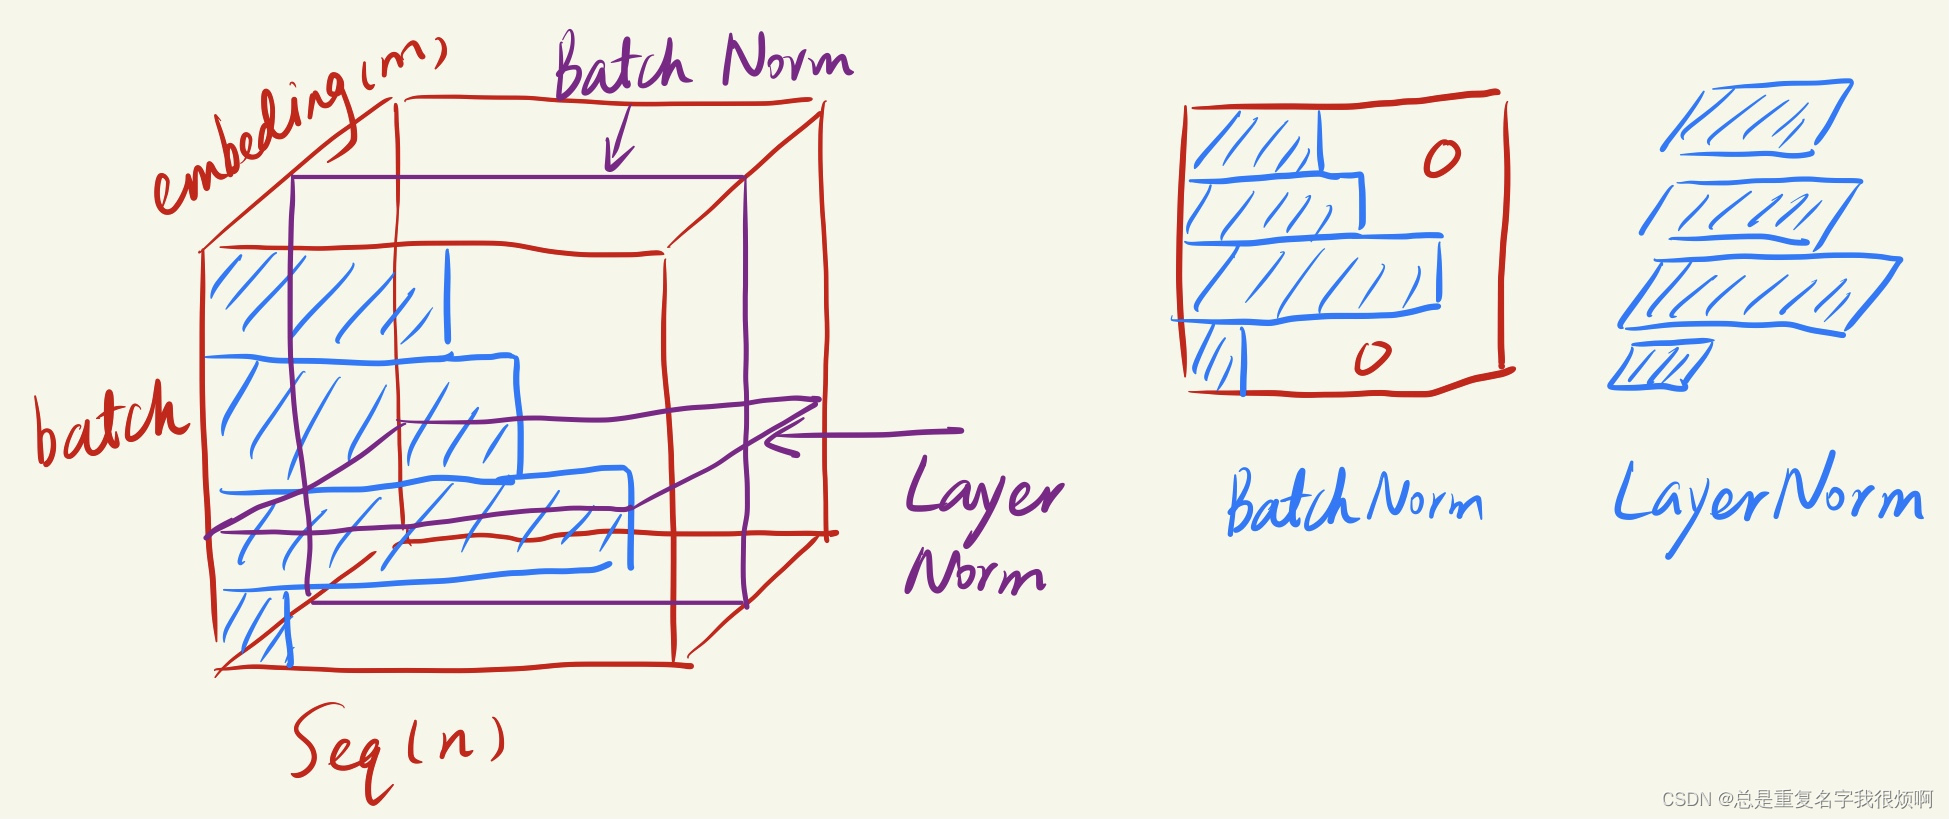 embeding(m)
Batch Norm
batch
Seq(n)
Layer
Norm
0
0
Batch Norm
LayerNorm
CSDN @总是重复名字我很烦啊